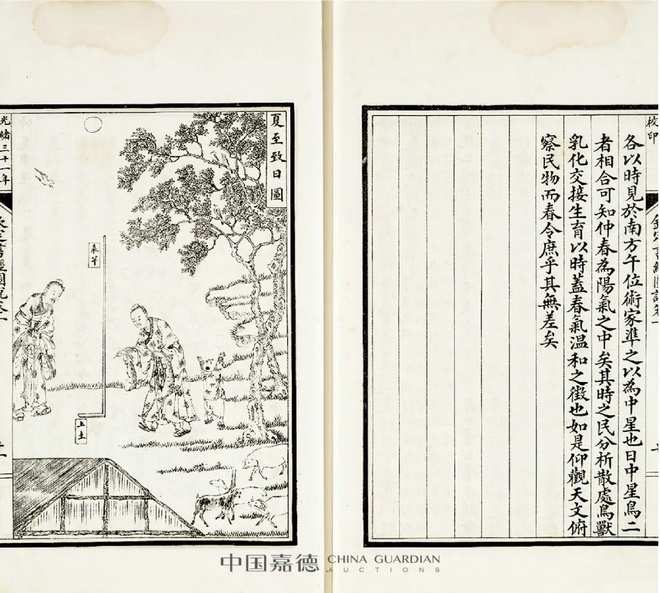 校印
各以時見於南方午位術家準之以為中星也日中星鳥二
者相合可知仲春為陽氣之中矣其時之民分析散處鳥獸
乳化交接生育以時蓋春氣溫和之徵也如是仰觀天文俯
察民物而春令庶乎其無差矣
夏至致日圖
表竿
土圭
光緒三十一年
欽定書經圖說卷一
中国嘉德 CHINA GUARDIAN
AUCTIONS